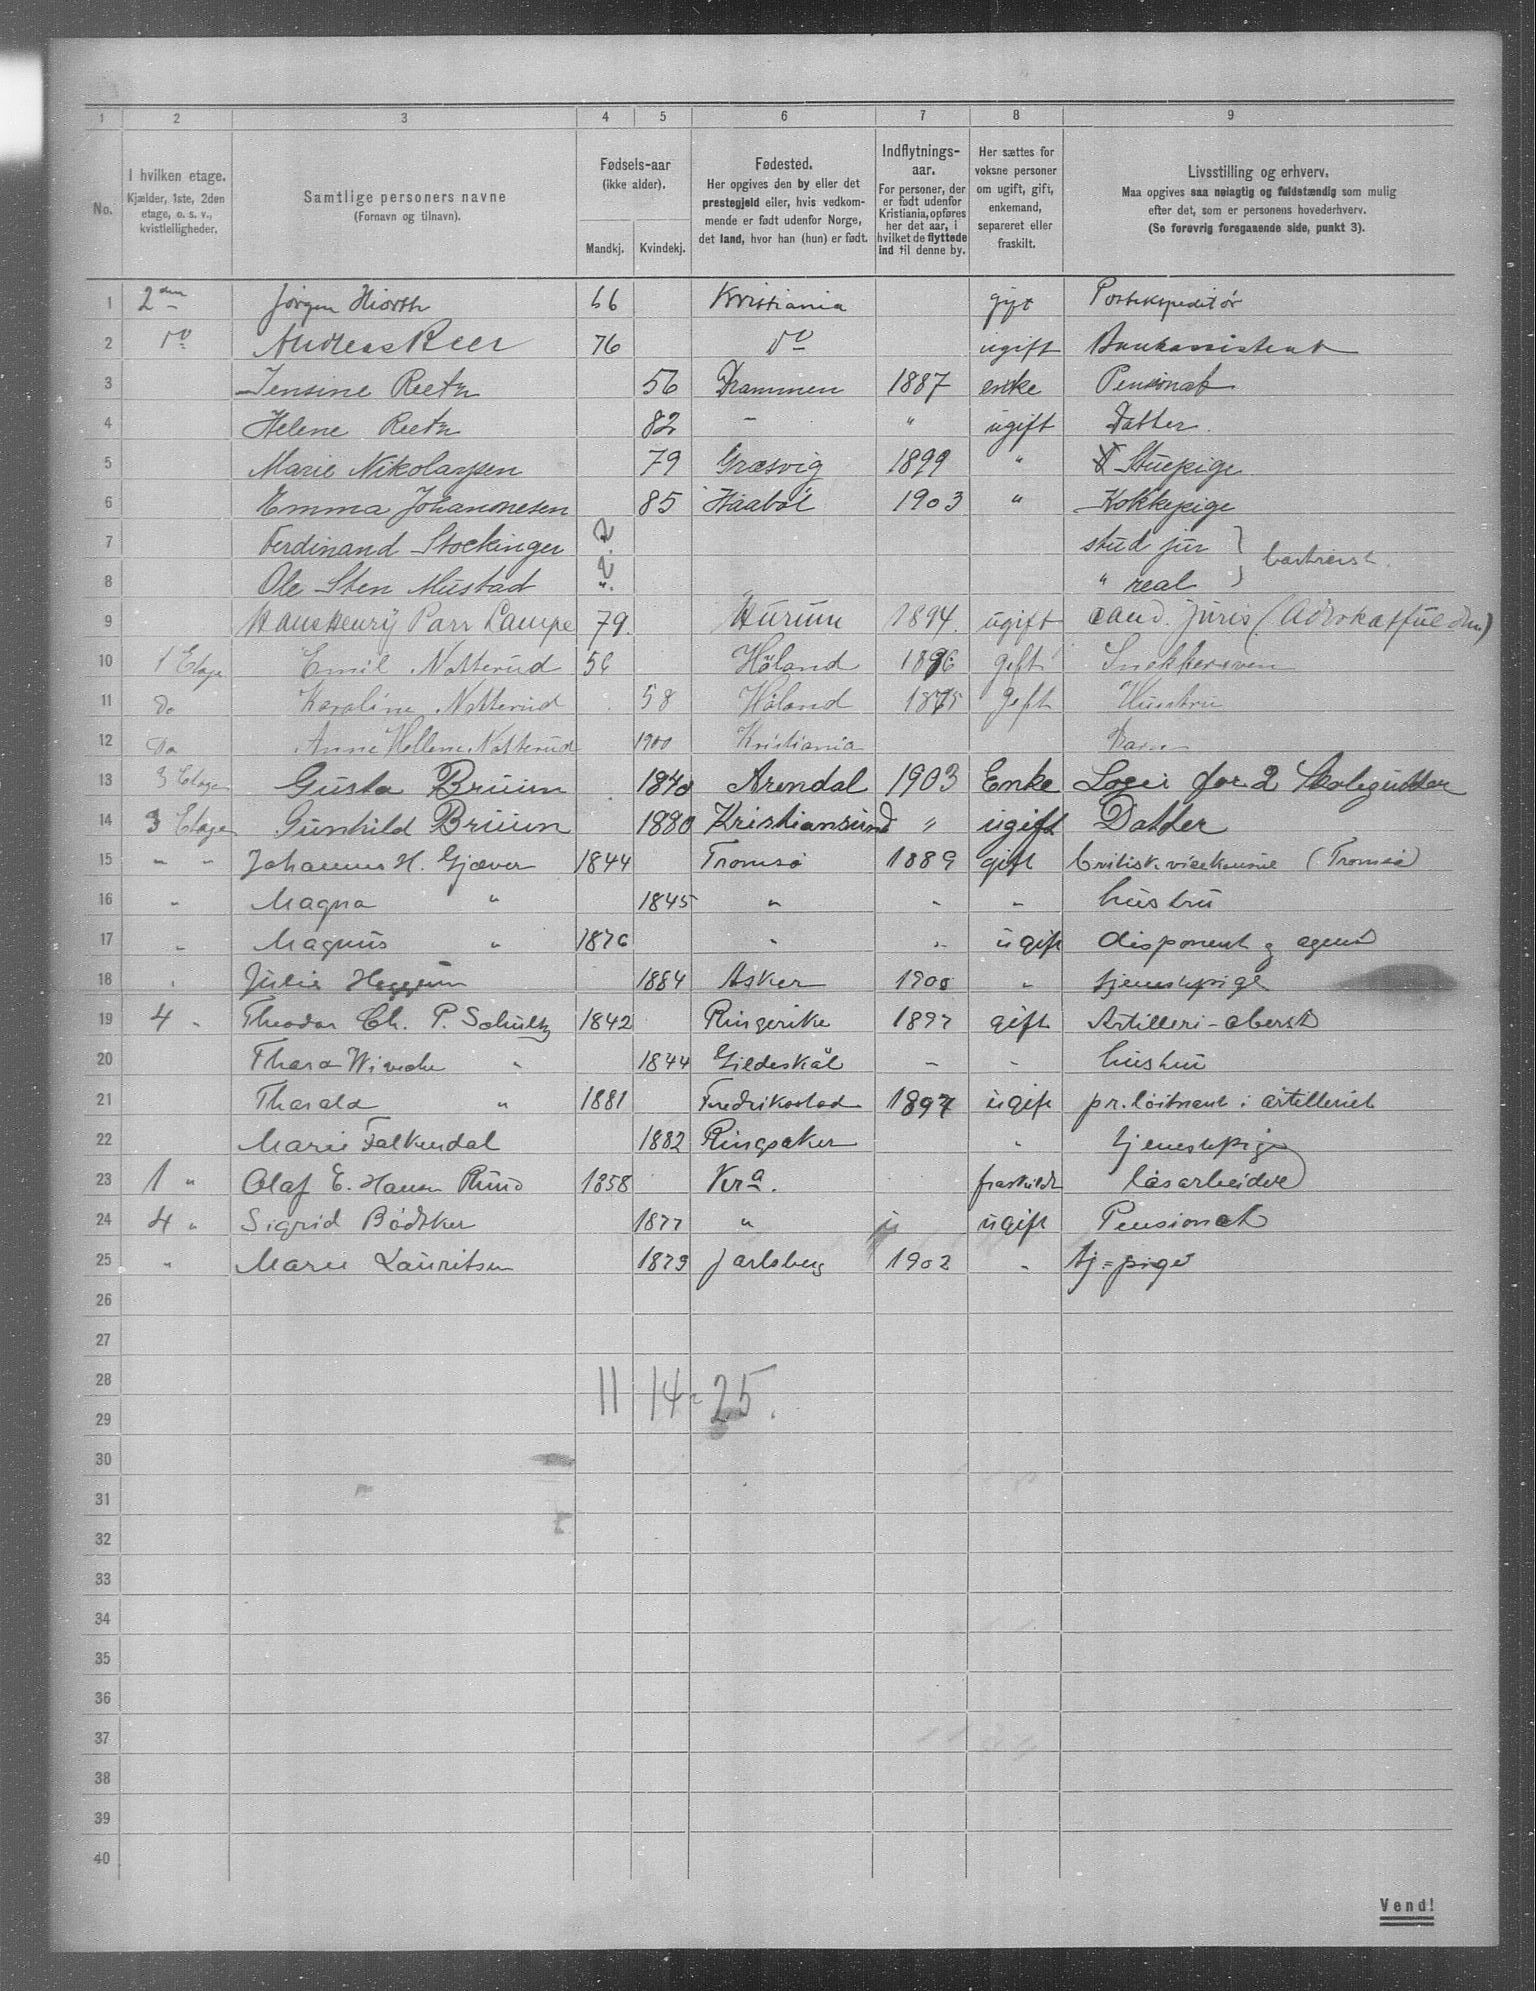 1 2 3 4 5 6 7 8 9
No.
I hvilken etage.
Kjælder, 1ste, 2den
etage, o. s. v.,
kvistleiligheder.
Samtlige personers navne
(Fornavn og tilnavn).
Fødsels-aar
(ikke alder).
Mandkj. Kvindekj.
Fødested.
Her opgives den by eller det
prestegjeld eller, hvis vedkom-
mende er født udenfor Norge,
det land, hvor han (hun) er født.
Indflytnings-
aar.
For personer, der
er født udenfor
Kristiania, opføres
her det aar, i
hvilket de flyttede
ind til denne by.
Her sættes for
voksne personer
om ugift, gift,
enkemand,
separeret eller
fraskilt.
Livsstilling og erhverv.
Maa opgives saa nøiagtig og fuldstændig som mulig
efter det, som er personens hovederhverv.
(Se forøvrig foregaaende side, punkt 3).
1 2den Jørgen Hiorth 66 Kristiania gift Postekspeditør
2 do Anders Reer 76 do ugift Bankassistent
3 Jensine Reetz 56 Drammen 1887 enke Pensionat
4 Helene Reetz 82 - " ugift Datter.
5 Marie Nikolaysen 79 Græsvig 1899 " Stuepige
6 Emma Johannesen 85 Haabøl 1903 " Kokkepige
7 Ferdinand Stockinger ? stud jur }
8 Ole Sten Mustad "? " real }
9 Hans Henry Parr Lampe 79. Hurum 1894. ugift cand. juris (Advokatfuldm)
10 1 Etage Emil Natterud 56 Høland 1896 gift Snekkersven
11 Do Karoline Natterud 58 Høland 1875 gift Hustru
12 Do Anne Hellene Natterud 1900 Kristiania Barn
13 3 Etage Gusta Bruun 1840 Arendal 1903 Enke Logi for 2 Skolegutter
14 3 Etage Gunhild Bruun 1880 Kristiansund " ugift Datter
15 " " Johannes H. Gjæver 1844 Tromsø 1889 gift britisk vicekonsul (Tromsø)
16 " Magna " 1845 " " " hustru
17 " Magnus " 1876 " " ugift disponent og agent
18 " Julie Heggum 1884 Asker 1900 " tjenestepige
19 4 " Theodor Ch. P. Schultz 1842 Ringerike 1897 gift Artilleri-oberst
20 Thora Wivecke " 1844 Gildeskål - - hustru
21 Tharald " 1881 Fredrikstad 1897 ugift pr. løitnant i artilleriet
22 Marie Falkendal 1882 Ringsaker " tjenestepige
23 1 " Olaf E. Hansen Ruud 1858 Kra. fraskildt løsarbeider
24 4 " Sigrid Bødtker 1877 " " ugift Pensionat
25 " Marie Lauritsen 1879 Jarlsberg 1902 " tj=pige
26
27
28 11 14 = 25.
29
30
31
32
33
34
35
36
37
38
39
40
Vend!